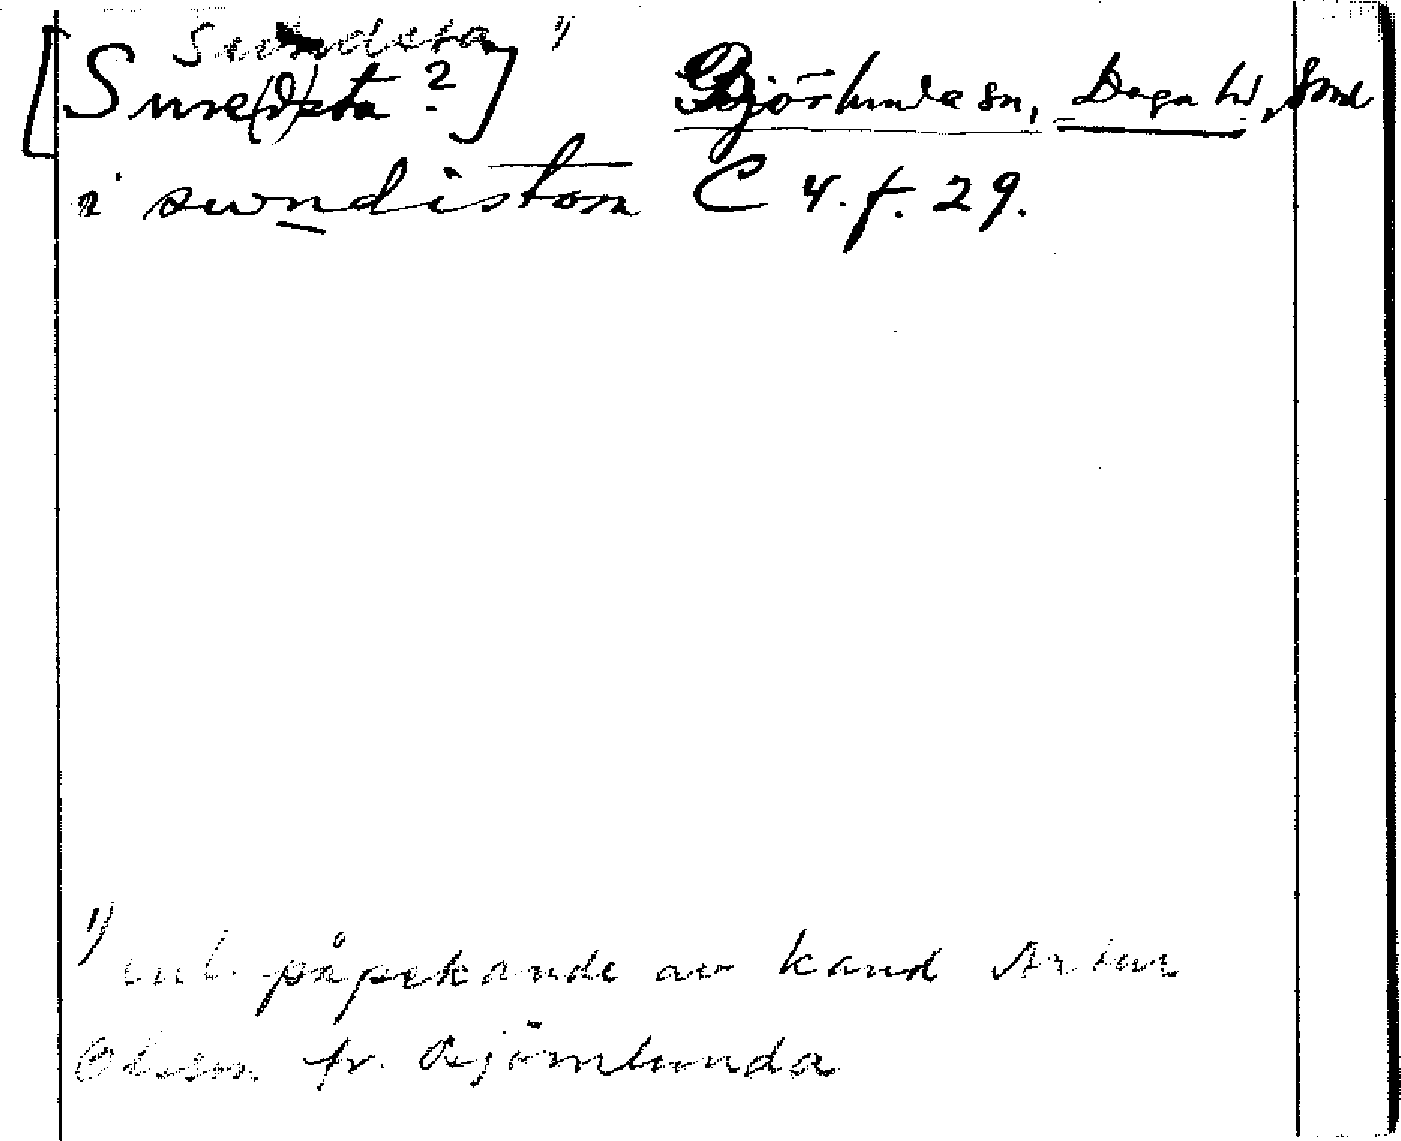 Sundeta 1)
[Sune(d)eta ?] Björlunda sn, Daga hd, Smd
i swndistom C 4. f. 29.
1) enl. påpekande av kand Artur
Olsson fr. Björnlunda